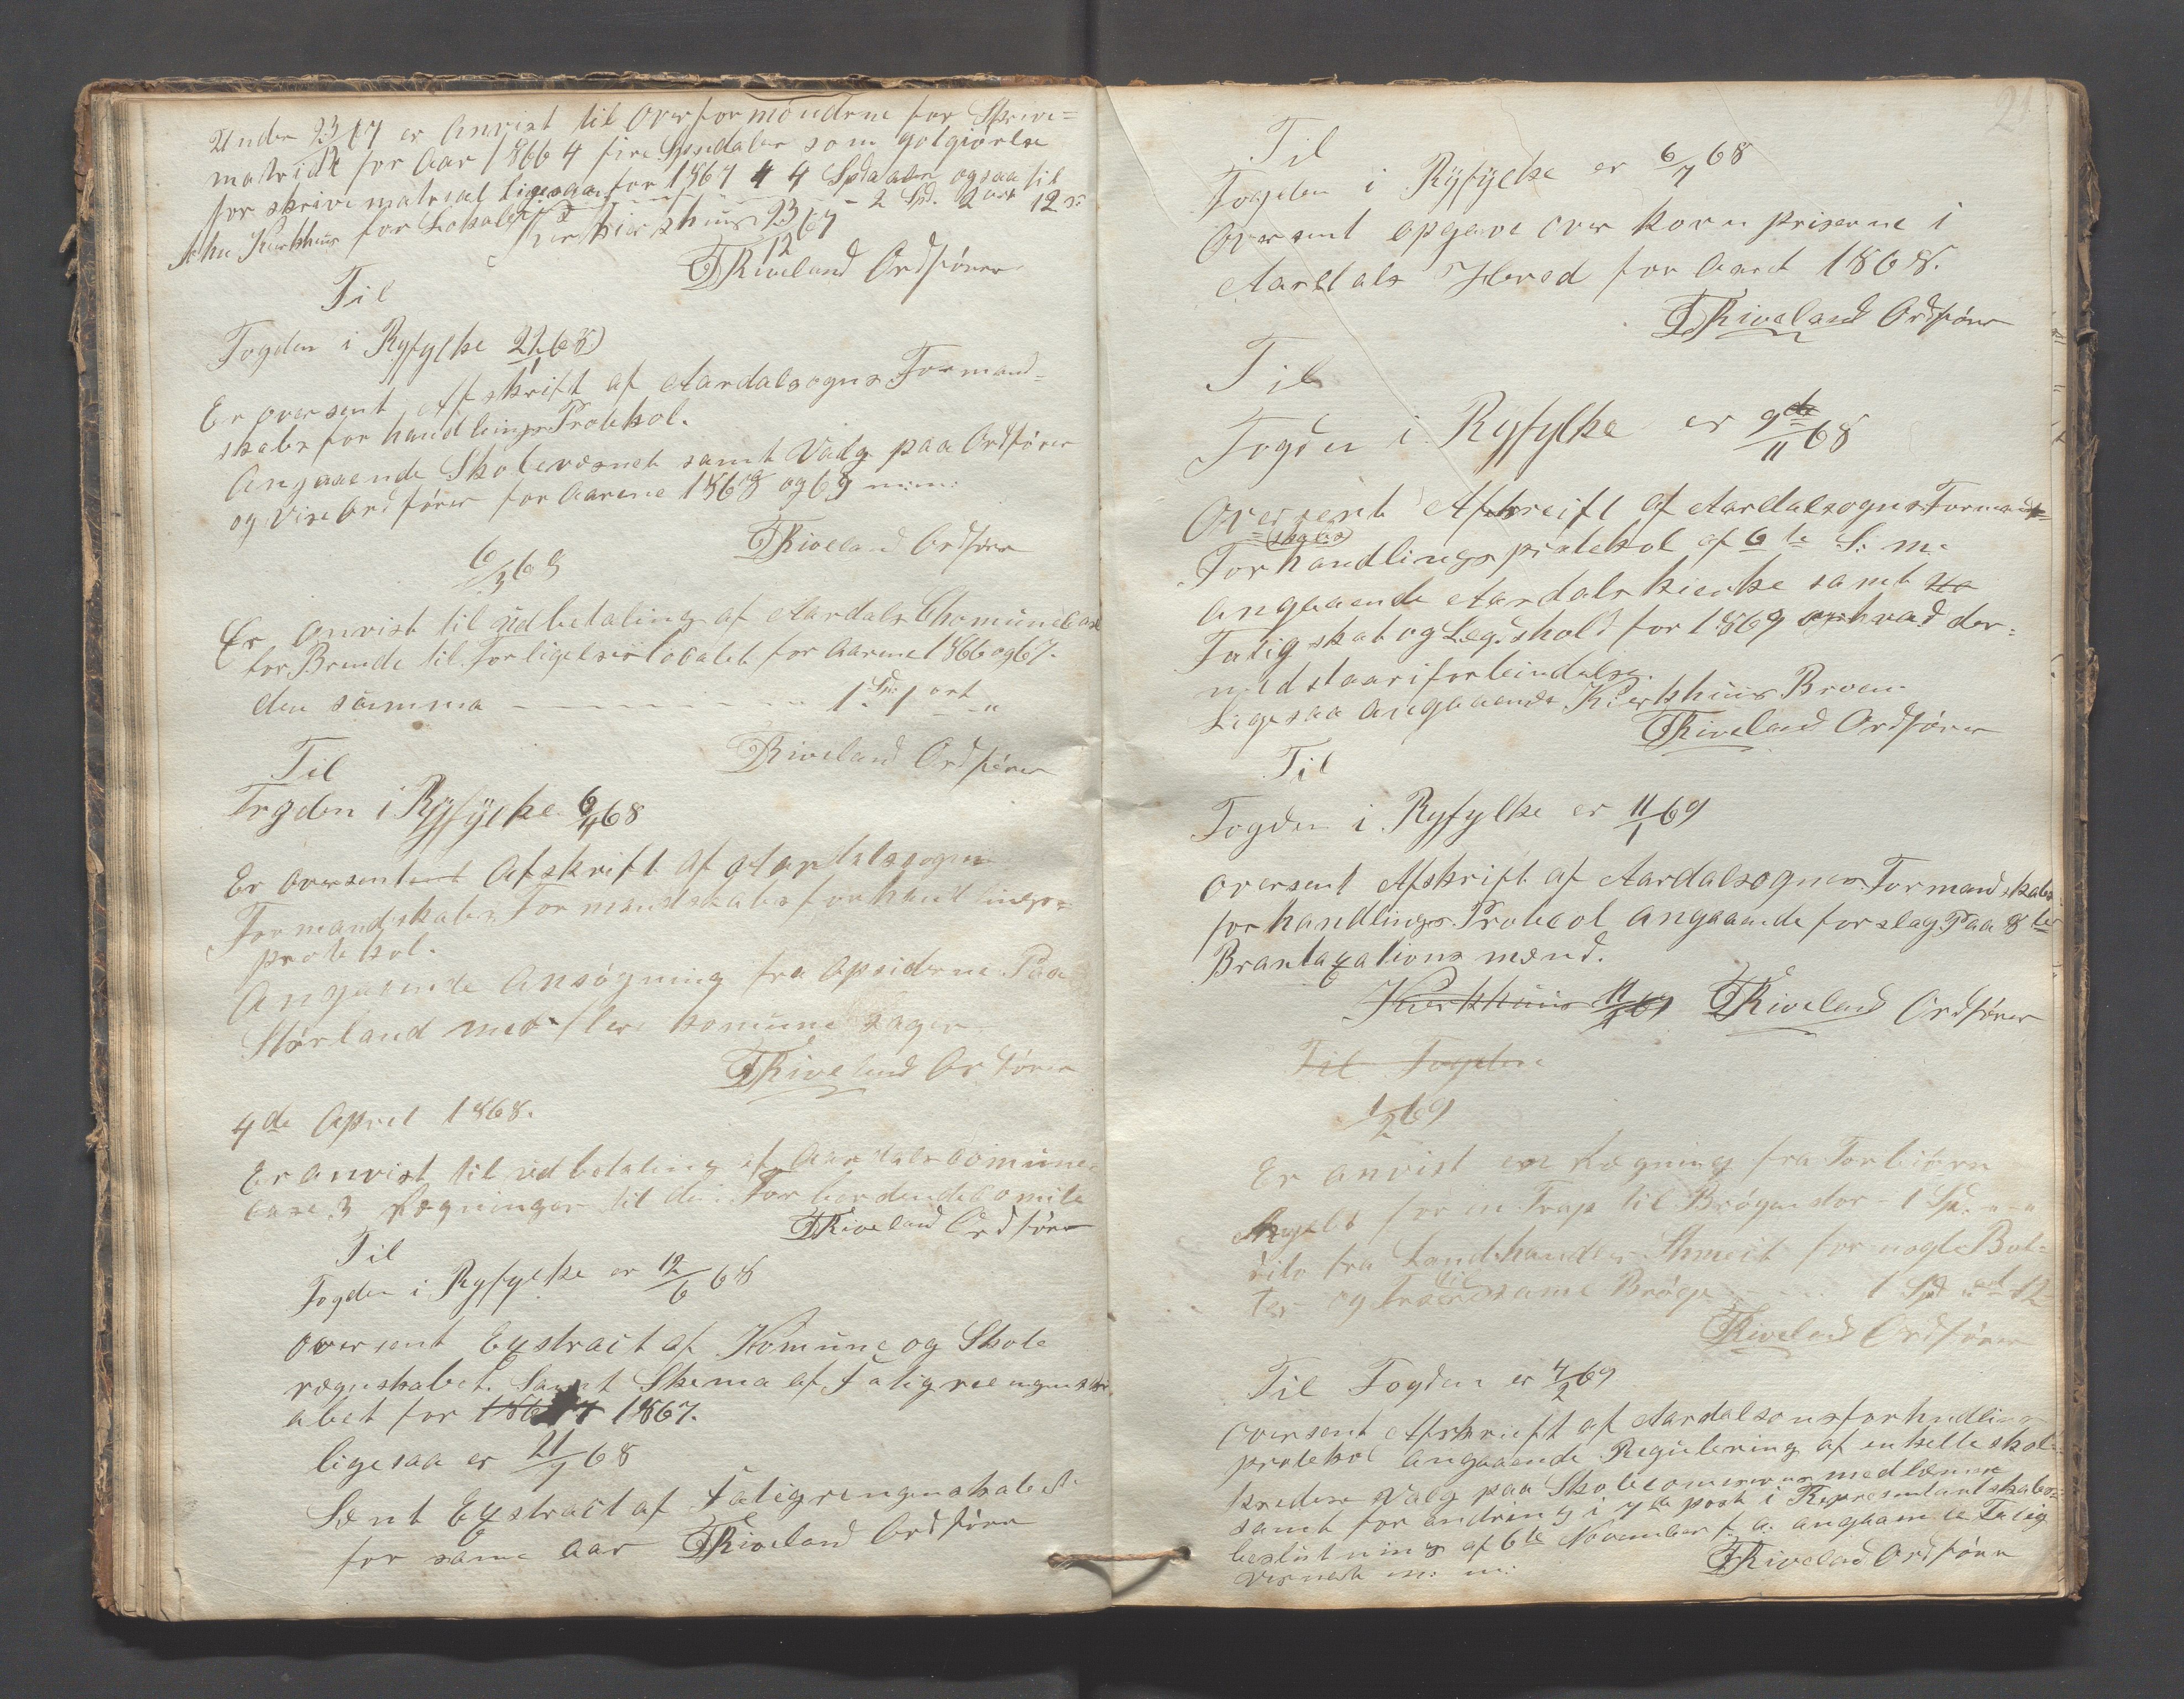 Under 23/12 67 er Anvist til Overformöndrne for Skrive=
matrialt for Aar 1866 4 fire Spesedaler som gotgiörelse
for skrivematreal ligesaa for 1867 4 Spdaler ogsaa til
Kirkhus for Lokale - 2 Spd. 2 ort 12 s:
Kirkhus 23/12 67
TRiveland Ordförer
Til
Fogden i Ryfylke 22/1 68
Er oversent Afskrift af Aardalsogns Formand=
skabs forhandlings Protokol.
Angaaende Skolevæsnet samt Valg paa Ordförer
og Vise Ordförer for Aarene 1868 og 69 m:m:
TRiveland Ordförer
6/3 68
Er Anvist til udbetaling af Aardals Chomunecase
for Brende til Forligelseslocalet for Aarene 1866 og 67.
den summa - - - - - - - - 1 Sp: 1 ort "
TRiveland Ordförer
Til
Fogden i Ryfylke 6/4 68
Er oversent Afskrift af Aardalssogns
Formandskabs Formandskabs forhandlings=
protokol.
Angaaende Ansögning fra Opsiderne Paa
Störland med flere komune sager
TRiveland Ordförer
4de April 1868.
Er anvist til udbetaling af Aardals Comune
case 3 Rægninger til den Forberedende Comite
TRiveland Ordförer
Til
Fogden i Ryfylke er 12/6 68
oversent Extract af Komune og Skole
rægnskabet. Samt Skema af Fatigreengnsk
abet for 1867.
ligesaa er 21/7 68
Sent Extract af Fatigrengnskabet
for same Aar TRiveland Ordförer
21
Til
Fogden i Ryfylke er 6/7 68
Oversent opgave over kornpriserne i
Aardals Hered for Aaret 1868.
TRiveland Ordförer
Til
Fogden i Ryfylke er 9de/11 68
Oversent Afskreift af AardalsognsFormand=
(skabs)
Forhandlingsprotokol af 6te d: m.
angaaende Aardals kierke samt
Fatigskat og Legdshold for 1869 hvad der=
med staar i forbindelse.
Ligesaa angaaende Kierkhuus Broen
TRiveland Ordförer
Til
Fogden i Ryfylke er 11/1 69
oversent Afskrift af Aardalsognes Formandskabs
forhandlings Protocol angaaende forslag Paa 8te
Brantaxations mænd.
Kierkhuus 11/1 69 TRiveland Ordförer
Til Fogden
1/2 69
Er anvist en Rægning fra Torbiörn
for en Trap til Brögen stor - 1 Spd. " - "
dito fra Landhandler Shmeit for nogle Bol=
ter og til same Bröge - - - 1 Spd " ort 12
TRiveland Ordförer
Til Fogden er 4/2 69
oversent Afskrieft af Aardalsonsforhndlings
protokol angaaende Regulering af enkelte skol
kredse Valg paa Skolecomisions medlemme
samt forandring i 7de post i Representantskabs=
beslutning af 6te November f: a: angaaende Fatig
vesenet m: m:
TRiveland Ordförer